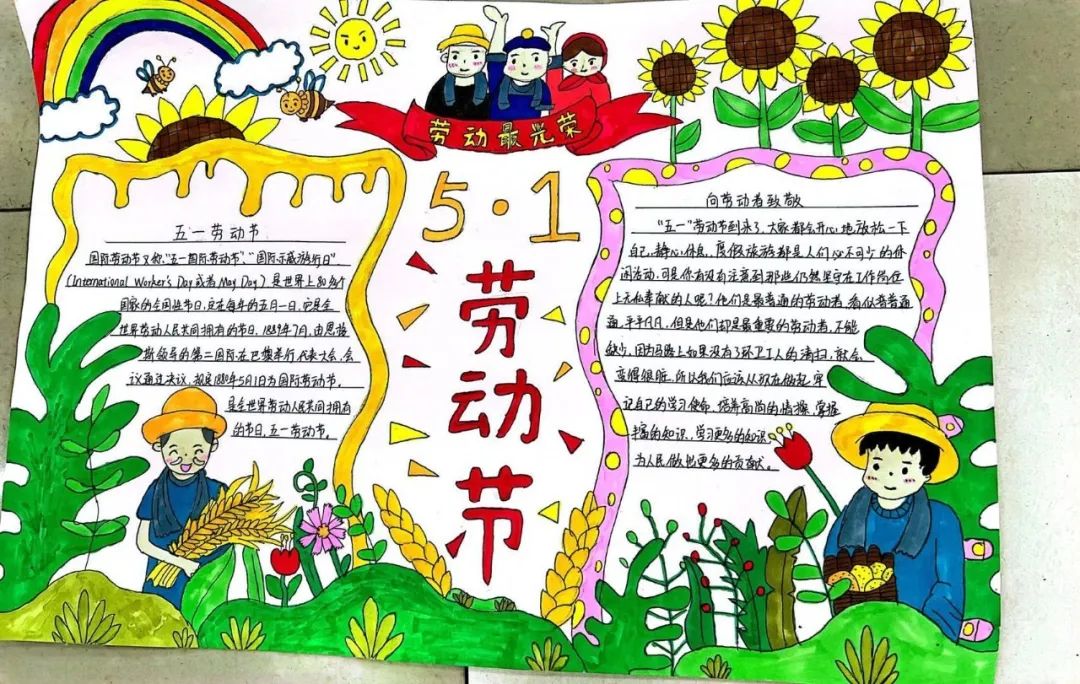 劳动最光荣
5·1
劳动节
五一劳动节
国际劳动节又称"五一国际劳动节","国际示威游行日"
(International Worker's Day或者May Day)是世界上80多个
国家的全国性节日,定在每年的五月一日,它是全
世界劳动人民共同拥有的节日。1889年7月,由恩格
斯领导的第二国际在巴黎举行代表大会,会
议通过决议,规定1880年5月1日为国际劳动节。
是全世界劳动人民共同拥有
的节日,五一劳动节。
向劳动者致敬
"五一"劳动节到来了,大家都会开心地放松一下
自己,静心休息,度假旅旅都是人们必不可少的休
闲活动,可是你有没有注意到那些仍然坚守在工作岗位
上无私奉献的人呢?他们是最普通的劳动者,看似普普通
通,平平凡凡,但是他们却是最重要的劳动者,不能
缺少,因为马路上如果没有了环卫工人的清扫,就会
变得很脏,所以我们应该从现在做起,牢
记自己的学习使命,培养高尚的情操,掌握
丰富的知识,学习更多的知识
为人民做出更多的贡献。